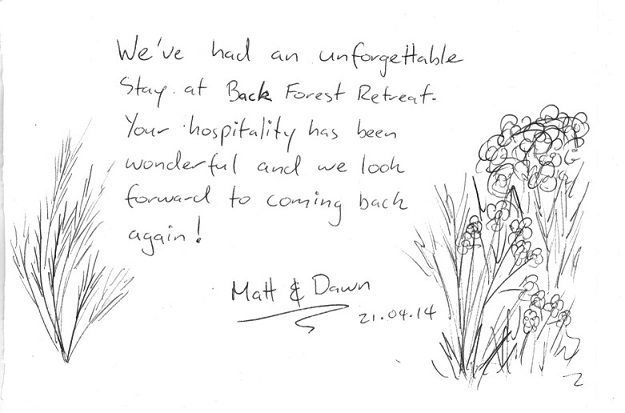 We've had an unforgettable
Stay at Back Forest Retreat.
Your hospitality has been
wonderful and we look
forward to coming back
again!
Matt & Dawn
21.04.14